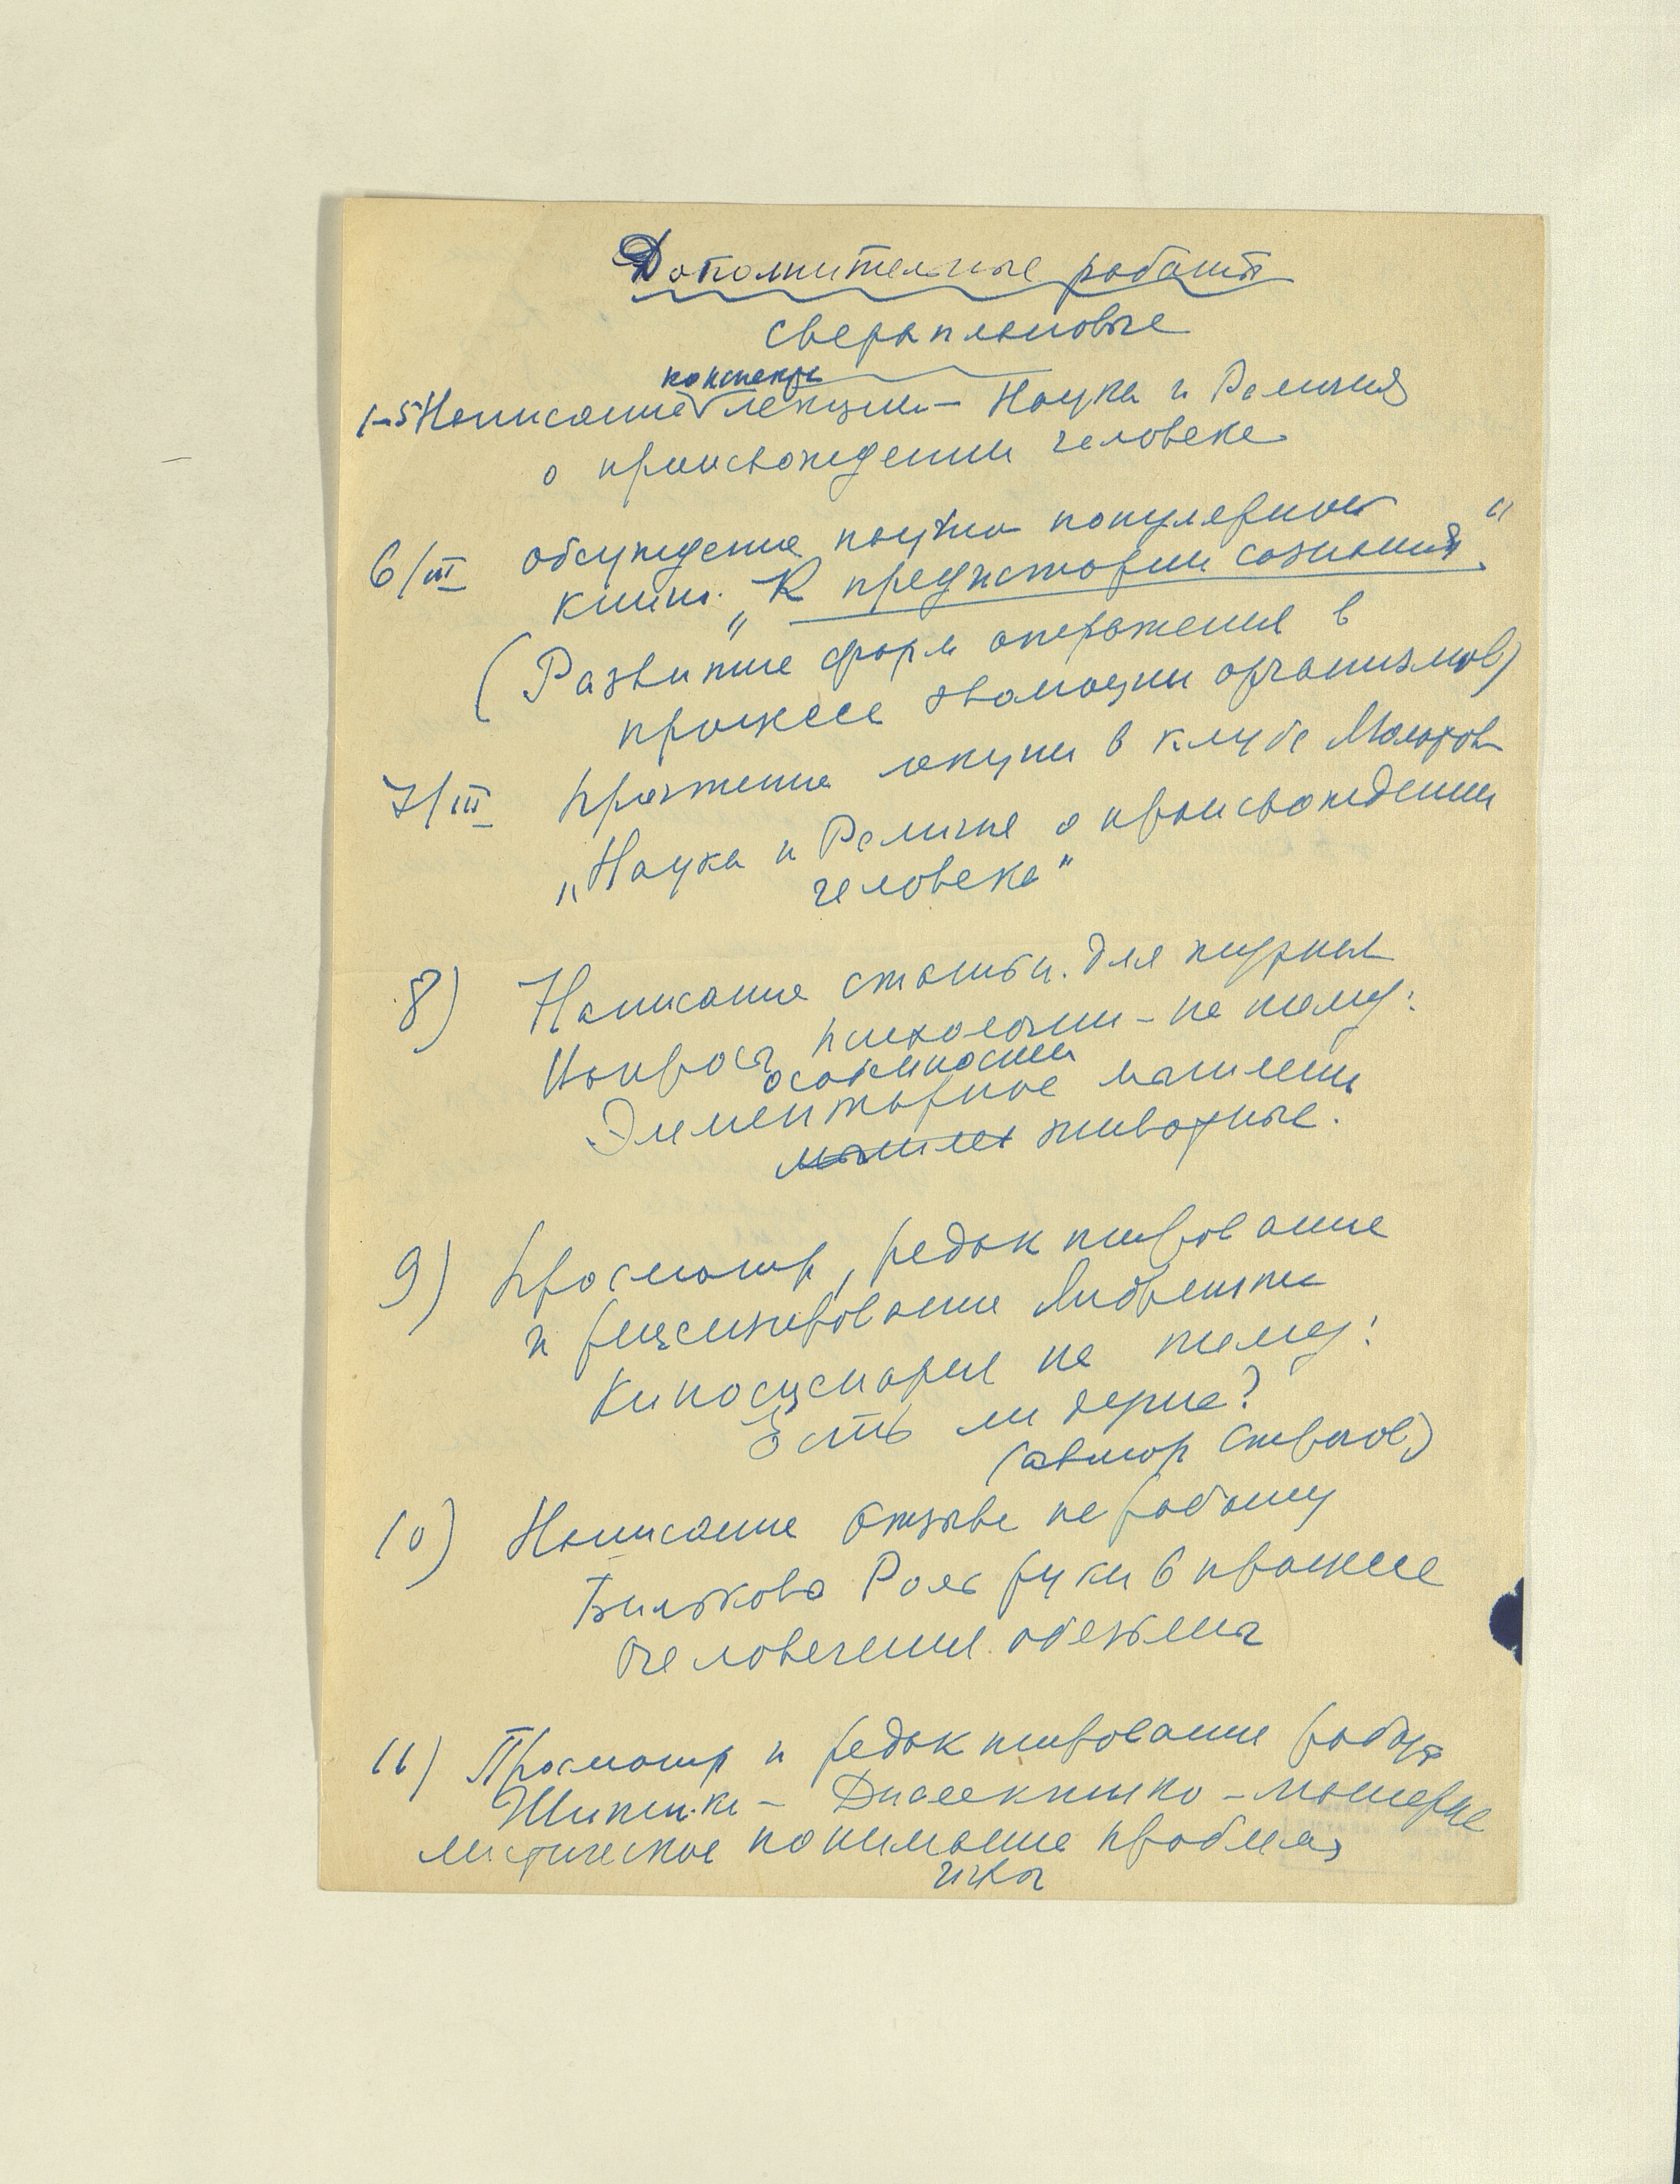 Дополнительные работы
сверхплановые
конспекта
1-5 Написание лекции – Наука и Религия
о происхождении человека
6/III обсуждение научно популярной
книги. „К предистории сознания"
(Развитие форм отражения в
процессе эволюции организмов)
7/III Прочтение лекции в клубе
„Наука и Религия о происхождении
человека"
8) Написание статьи для журнал
Вопросы психологии – на тему:
особенности
Элементарное мышлени
мышлен животные.
9) Просмотр, редактирование
и рецензирование Либретто
Киносценария на тему:
Есть ли душа?
(автор
10) Написание отзыва на работу
Роль руки в процессе
очеловечения обезьяны
11) Просмотр и редактирование работы
– Диалектико-материа
листическое понимание проблемы